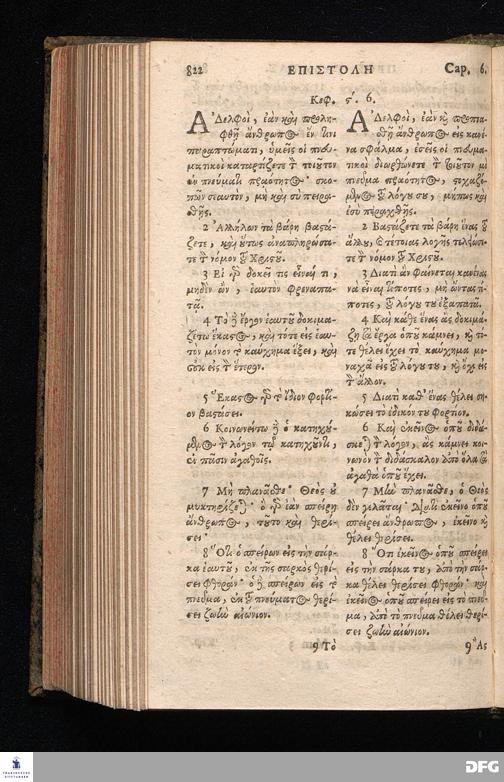 822 ΕΠΙΣΤΟΛΗ Cap. 6.
Κεφ. ς´. 6.
ἈΔελφοὶ, ἐὰν καὶ προλη-
φθῇ ἄνθρωπος ἔν τινι
παραπτώματι, ὑμεῖς οἱ πνευ-
ματικοὶ καταρτίζετε τὸν τοιοῦτον
ἐν πνεύματι πραότητος· σκο-
πῶν σεαυτὸν, μὴ καὶ σὺ πειρα-
σθῇς.
2 Ἀλλήλων τὰ βάρη βαστά-
ζετε, καὶ οὕτως ἀναπληρώσα-
τε τὸν νόμον τοῦ Χριστοῦ.
3 Εἰ γὰρ δοκεῖ τις εἶναί τι,
μηδὲν ὢν, ἑαυτὸν φρεναπα-
τᾷ.
4 Τὸ δὲ ἔργον ἑαυτοῦ δοκιμα-
ζέτω ἕκαστος, καὶ τότε εἰς ἑαυ-
τὸν μόνον τὸ καύχημα ἕξει, καὶ
οὐκ εἰς τὸν ἕτερον.
5 Ἕκαστος γὰρ τὸ ἴδιον φορτί-
ον βαστάσει.
6 Κοινωνείτω δὲ ὁ κατηχού-
μενος τὸν λόγον τῷ κατηχοῦντι,
ἐν πᾶσιν ἀγαθοῖς.
7 Μὴ πλανᾶσθε· Θεὸς οὐ
μυκτηρίζεται· ὃ γὰρ ἐὰν σπείρῃ
ἄνθρωπος, τοῦτο καὶ θερί-
σει·
8 Ὅτι ὁ σπείρων εἰς τὴν σάρ-
κα ἑαυτοῦ, ἐκ τῆς σαρκὸς θερί-
σει φθοράν· ὁ δὲ σπείρων εἰς τὸ
πνεῦμα, ἐκ τοῦ πνεύματος θερί-
σει ζωὴν αἰώνιον.
9 Τὸ
ἈΔελφοὶ, ἐὰν καὶ προπια-
σθῇ ἄνθρωπος εἰς κανέ-
να σφάλμα, ἐσεῖς οἱ πνευμα-
τικοὶ διορθώνετε τὸν τοιοῦτον μὲ
πνεῦμα πραότητος, στοχαζό-
μενος τοῦ λόγου σου, μήπως καὶ
ἐσὺ πειραχθῇς.
2 Βαστάζετε τὰ βάρη ἕνας τοῦ
ἄλλου, καὶ τέτοιας λογῆς τελειώνε-
τε τὸν νόμον τοῦ Χριστοῦ.
3 Διατὶ ἂν φαίνεται κανένας
νὰ εἶναι τίποτες, μὴ ὤντας τί-
ποτες, τοῦ λόγου του ἐξαπατᾷ.
4 Καὶ κάθε ἕνας ἂς δοκιμά-
ζῃ τὰ ἔργα ὁποῦ κάμνει, καὶ τό-
τε θέλει ἔχει τὸ καύχημα μο-
ναχὰ εἰς τοῦ λόγου του, καὶ ὄχι εἰς
τὸν ἄλλον.
5 Διατὶ καθ' ἕνας θέλει ση-
κώσει τὸ ἐδικόν του φορτίον.
6 Καὶ ἐκεῖνος ὁποῦ διδά-
σκεται τὸν λόγον, ἂς κάμνει κοι-
νωνὸν τὸν διδάσκαλον ἀπὸ ὅλα τὰ
ἀγαθὰ ὁποῦ ἔχει.
7 Μὴν πλανᾶσθε, ὁ Θεὸς
δὲν γελᾶται· διατὶ ἐκεῖνο ὁποῦ
σπείρει ἄνθρωπος, ἐκεῖνο καὶ
θέλει θερίσει.
8 Ὅτι ἐκεῖνος ὁποῦ σπείρει
εἰς τὴν σάρκα του, ἀπὸ τὴν σάρ-
κα θέλει θερίσει φθοράν· καὶ
ἐκεῖνος ὁποῦ σπείρει εἰς τὸ πνεῦ-
μα, ἀπὸ τὸ πνεῦμα θέλει θερί-
σει ζωὴν αἰώνιον.
9 Ἂς
FRANCKESCHE
STIFTUNGEN
DFG